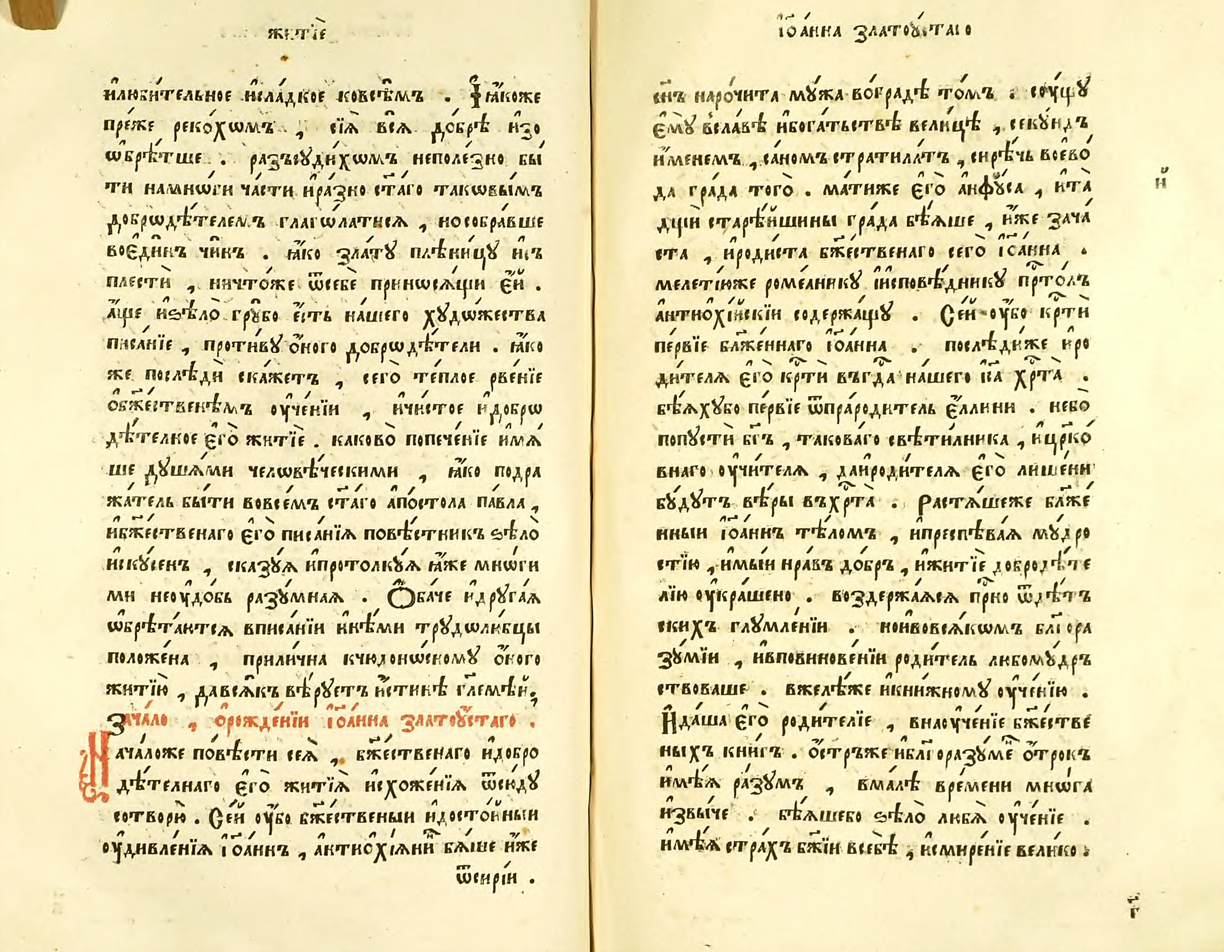 житїе
илюбительное исладкое ковсѣмъ . Ꙗ҆коже
преже рекохѡмъ , сїѧ всѧ добрѣ изо
ѡбрѣтше . разъсудихѡмъ неполезно бы
ти намнѡги части иразно ст҃аго таковымъ
добрѡдѣтелемъ глаголатисѧ , нособравше
воединъ чинъ . ꙗко злату плѣницу исъ
плести , ничтоже ѿсебе приносѧщи ей .
аще иѕѣло грубо есть нашего художества
писанїе , противу оного добрѡдѣтели . ꙗко
же послѣди скажетъ , сего теплое рвенїе
обж҃ественѣмъ оученїи , ичистое идобрѡ
дѣтелное его житїе . каково попеченїе имѧ
ше душѧми челѡвѣческими , ꙗко подра
жатель быти вовсемъ ст҃аго апостола павла ,
ибж҃ественаго его писанїѧ повѣстникъ ѕѣло
искусенъ , сказуѧ ипротолкуѧ ꙗже мнѡги
ми неоудобь разумнаѧ . Ѻбаче идругаѧ
ѡбрѣтаютсѧ вписанїи инѣми трудолюбцы
положена , прилична кчюдоносному оного
житїю , давсѧкъ вѣруетъ истинѣ гл҃емѣй,
Зачало , орожденїи їоанна златоустаго .
Началоже повѣсти сеѧ , бж҃ественаго идобро
дѣтелнаго его житїѧ исхоженїѧ ѿсюду
сотворю . Сей оубо бж҃ественыи идостойныи
оудивленїѧ їоаннъ , антиохїѧнинъ бѧше иже
ѿсирїи .
їоанна златоустаго
сн҃ъ нарочита мужа воградѣ томъ . сощу
ему вславѣ ибогатьствѣ велицѣ , секундъ
именемъ , саномъ стратилатъ , сирѣчь воево
да града того . матиже его анфуса , ита
дщїй старѣйшины града бѣѧше , иже зача
ста , иродиста бж҃ественаго сего їоанна .
мелетїюже ромеанику їисповѣднику прⷭ҇толъ
антиохїйскїи содержащу . Сей оубо крⷭ҇ти
первїе блаженнаго їоанна . послѣдиже иро
дителѧ его крⷭ҇ти въг҃да нашего і҃са хрⷭ҇та .
бѣѧхубо первїе ѿпрародитель еллини . небо
попусти бг҃ъ , таковаго свѣтилника , ицр҃ко
внаго оучителѧ , даиродителѧ его лишени
будутъ вѣры въхрⷭ҇та . Растѧшеже блаже
нныи їоаннъ тѣломъ , ипреспѣваѧ мудро
стїю , имыи нравъ добръ , ижитїе добродѣте
лїю оукрашено . воздержаѧсѧ прⷭ҇но ѿдѣтъ
скихъ глумленїи . ноивовсѧкомъ благора
зумїи , ивповиновенїи родитель любомудръ
ствоваше . вжелѣже икнижному оученїю .
Идаша его родителїе , внаоученїе бж҃естве
ныхъ книгъ . остръже иблагоразуменъ отрокъ
имѣѧ разумъ , вмалѣ времени мнѡга
извыче . бѣѧшебо ѕѣло любѧ оученїе .
имѣѧ страхъ бж҃їи всебѣ , исмиренїе велико .
и҃
г҃